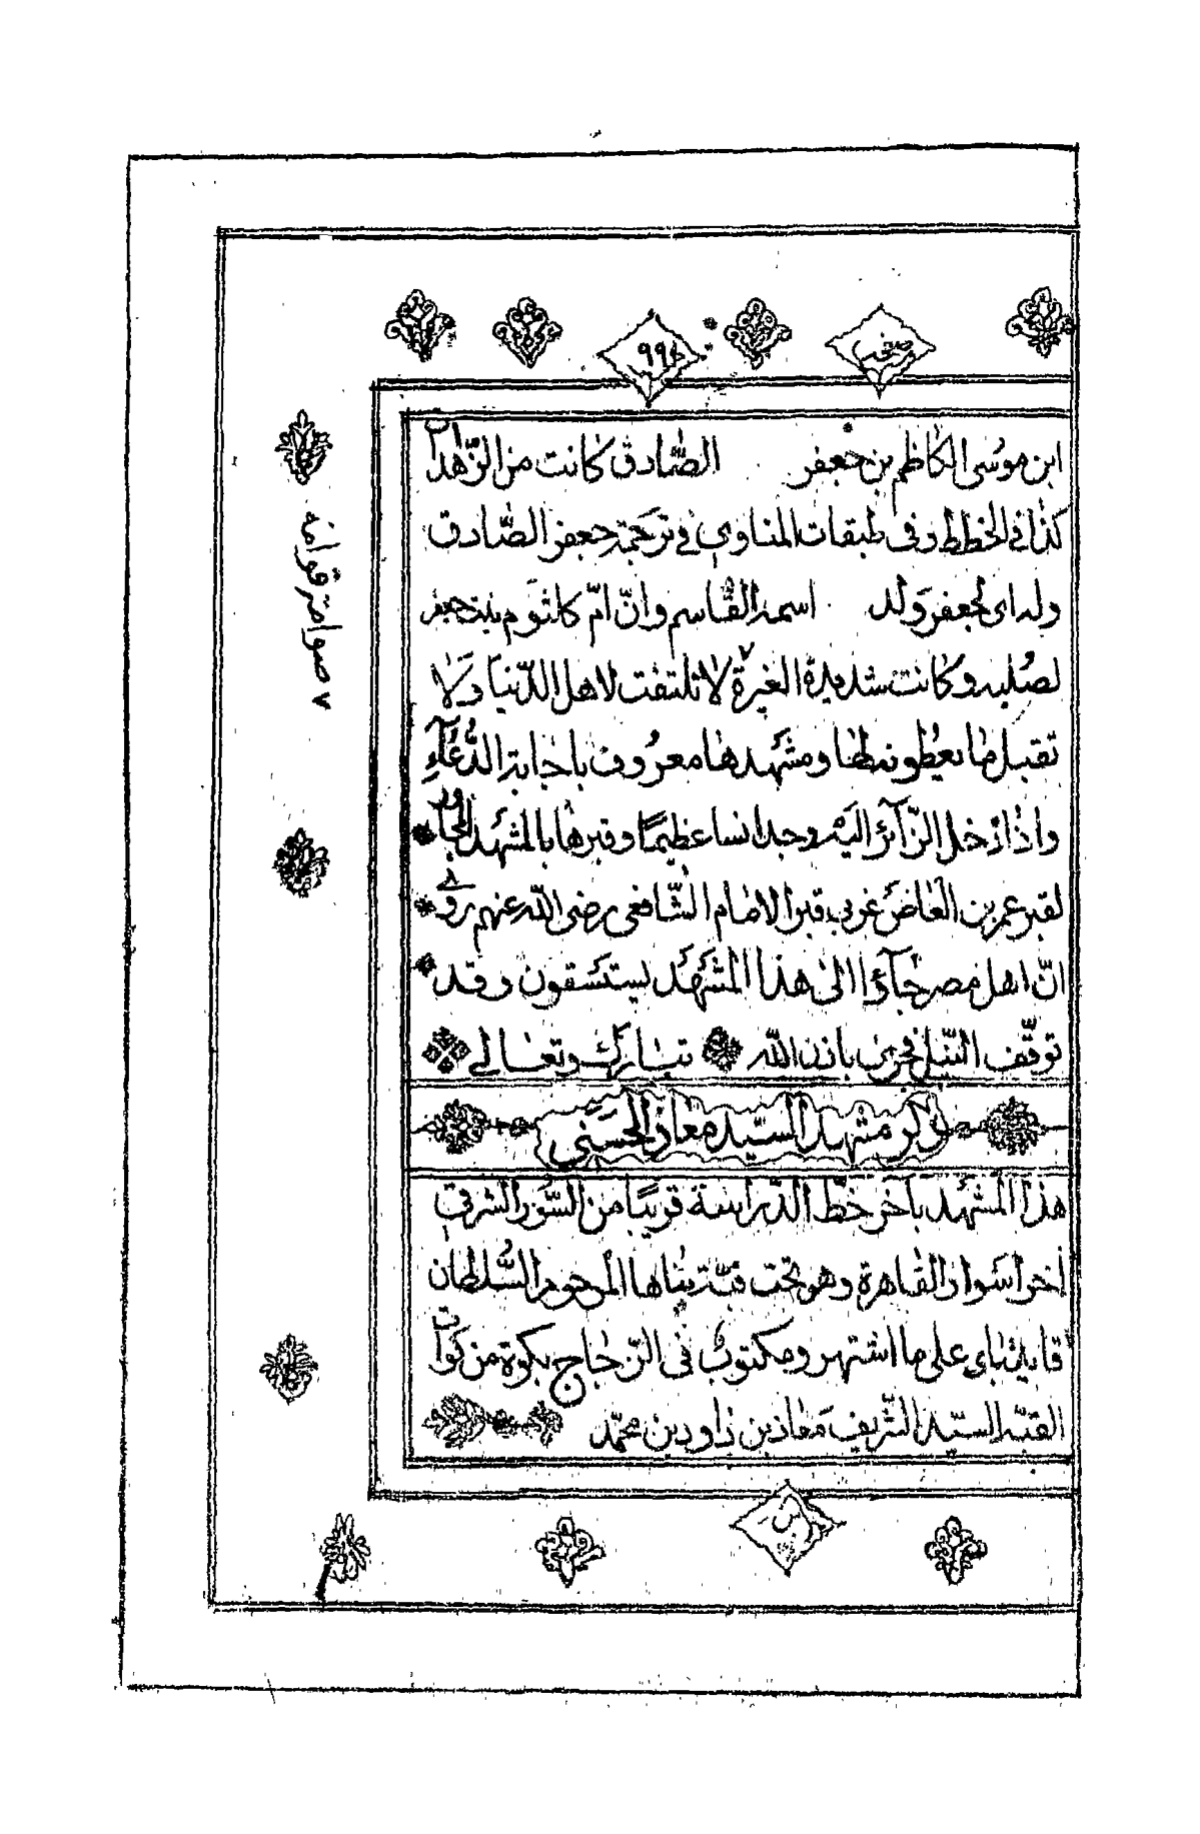 وصفحه
٩٩٤
ابن موسى الكاظم بن جعفر الصّادق كانت من الزّهدات
كذا فى الخطط وفى طبقات المناوى فى ترجمة جعفر الصّادق
وله اى لجعفر ولد اسمه القاسم وانّ امّ كلثوم بنت جعفر
لصُلبه وكانت شديدة الغيرة لا تلتفت لاهل الدّنيا ولا
تقبل ما يعُطونه لها ومشَهدها معرُوف باجابة الدُّعَآءِ
واذا دخل الزّآئر اليه وجد انسا عظيمًا وقبرها بالمشهد المجاور
لقبر عمر بن العاصَ غربى قبر الامام الشّافعى رضى اللّه عنهم روى
انّ اهل مصر جَآءُوا الى هذا المشَهَد يستسَقون وقد
توقّف النّيل فجرى باذن اللّه تبارك وتعالى
ذكر مشهد السيّد معاذ الحسَنى
هذا المشَهد بآخر خطّ الدّراسة قريبًا من السّور الشرقى
اخر اسَوار القاهرة وهو تحت قبّة بناها المرحوم السُّلطان
قايتباى على ما اشتهر ومكتوب فى الزّجاج بكوة من كوات
القبّه السيّد الشّريف معَاذ بن داود بن محمّد
٧ صوامة قوامة